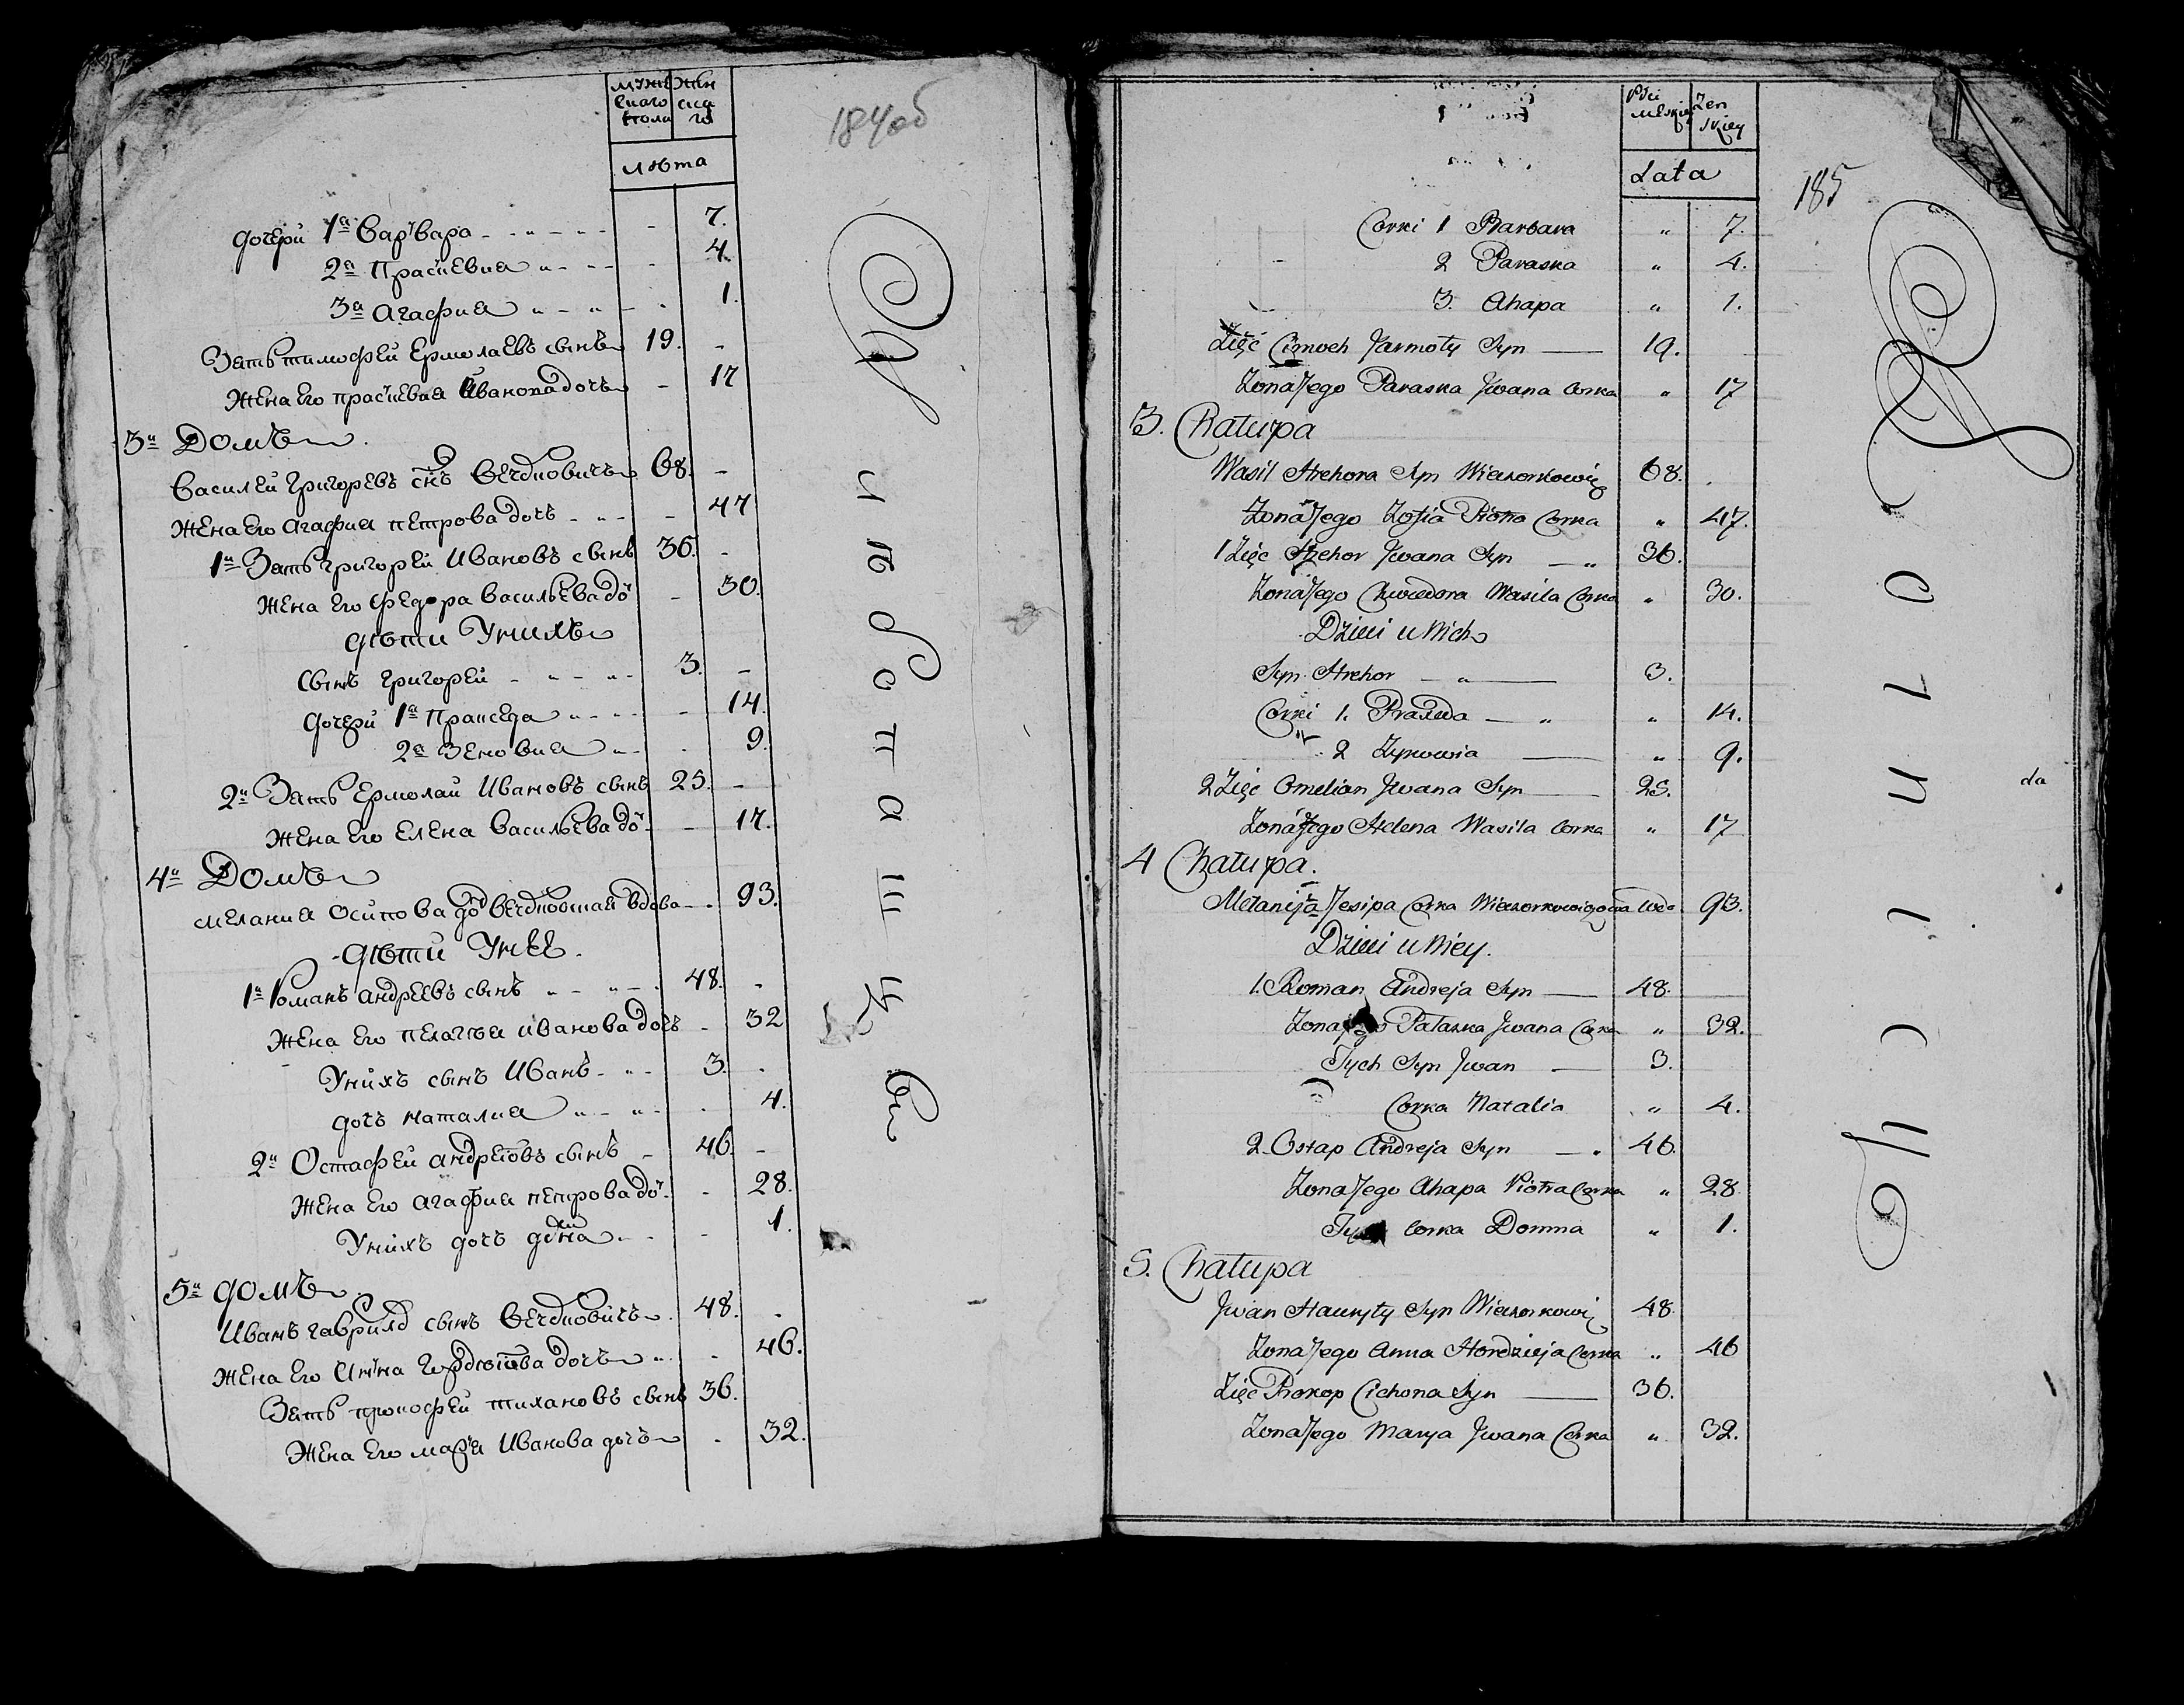 мужескаго пола
женскаго
лѣта
184об
дочери 1а Варъвара 7.
2а Прасковиа 4.
3а Агафиа 1.
Зять тимофеи Ермолаевъ сынъ 19.
Жена Его прасковиа Иванова дочь 17
3й Домъ
Василеи Григоревъ снъ 68.
Жена Его Агафиа петрова дочь 47
1й Зять григореи Ивановъ сынъ 36.
Жена Его Федора васильева до 30.
дѣти Унихъ
Сынъ григореи 3.
дочери 1а Праскеда 14.
2а Зеновиа 9.
2й Зять Ермолаи Ивановъ сынъ 25.
Жена Его Елена васильева до 17.
4й Домъ
мелания осипова до вдова 93.
дѣти Унее.
1й Романъ андреевъ сынъ 48.
Жена Его пелагѣя иванова дочь 32
Унихъ сынъ Иванъ 3.
дочь наталиа 4.
2й Остафеи андреевъ сынъ 46.
Жена Его агафиа петрова до 28.
Унихъ дочь домна 1.
5й домъ
Иванъ гаврила сынъ 48.
Жена Его Анна дочь 46.
Зять прокофеи тихановъ сынъ 36.
Жена Его маря Иванова дочь 32.
Płci Męskiey
Żenskiey
Lata
185
Corki 1 Barbara " 7.
2 Paraska " 4.
3. Ahapa " 1.
Zięć Cimoch Jarmoły Syn 19.
Zona Jego Paraska Jwana Corka " 17
3. Chałupa
Wasil Hrehora Syn Wieczorkowicz 68.
Zona Jego Zofia Piotra Corka " 47.
1 Zięć Hrehor Jwana Syn 36.
Zona Jego Chwiedora Wasila Corka " 30.
Dzieci u Nich
Syn Hrehor 3.
Corki 1. Praxeda " 14.
2 Zynowia " 9.
2 Zięć Omelian Jwana Syn 25.
Zona Jego Helena Wasila Corka " 17
4 Chałupa.
Mełanija Jesipa Corka Wieczorkowiczowa wdo 93.
Dzieci u Niey.
1. Roman Andreja Syn 48.
Zona Jego Pałaska Jwana Corka " 32.
Tych Syn Jwan 3.
Corka Natalia " 4.
2. Ostap Andreja Syn 46.
Zona Jego Ahapa Piotra Corka " 28.
Tych Corka Domna " 1.
5. Chałupa
Jwan Hauryły Syn Wieczorkowicz 48.
Zona Jego Anna Hordzieja Corka " 46
Zięć Prokop Cichona Syn 36.
Zona Jego Marya Jwana Corka " 32.
da